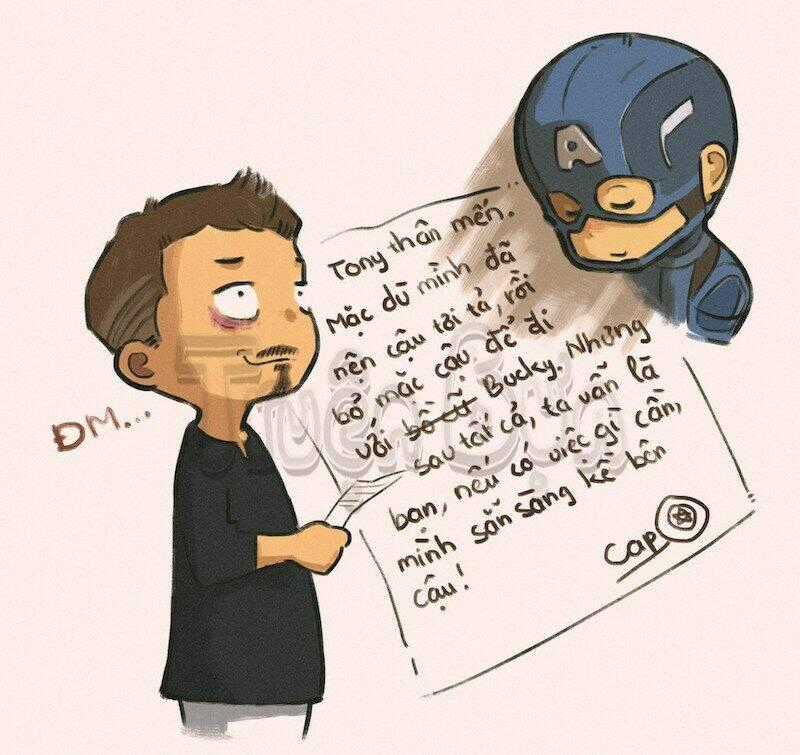 Tony thân mến.
Mặc dù mình đã
nện cậu tơi tả, rồi
bỏ mặc cậu để đi
với bồ tớ Bucky. Nhưng
sau tất cả, ta vẫn là
bạn, nếu có việc gì cần,
mình sẵn sàng kề bên
cậu!
Cap
ĐM...
A
Tuyền Bựa